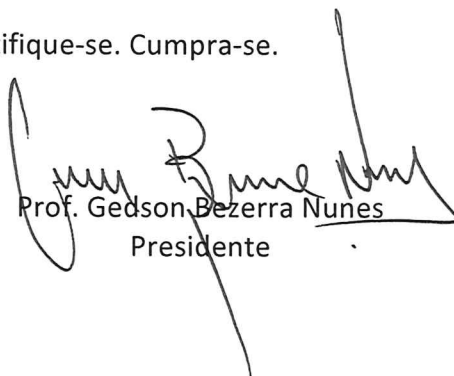 tifique-se. Cumpra-se.
Prof. Gedson Bezerra Nunes
Presidente